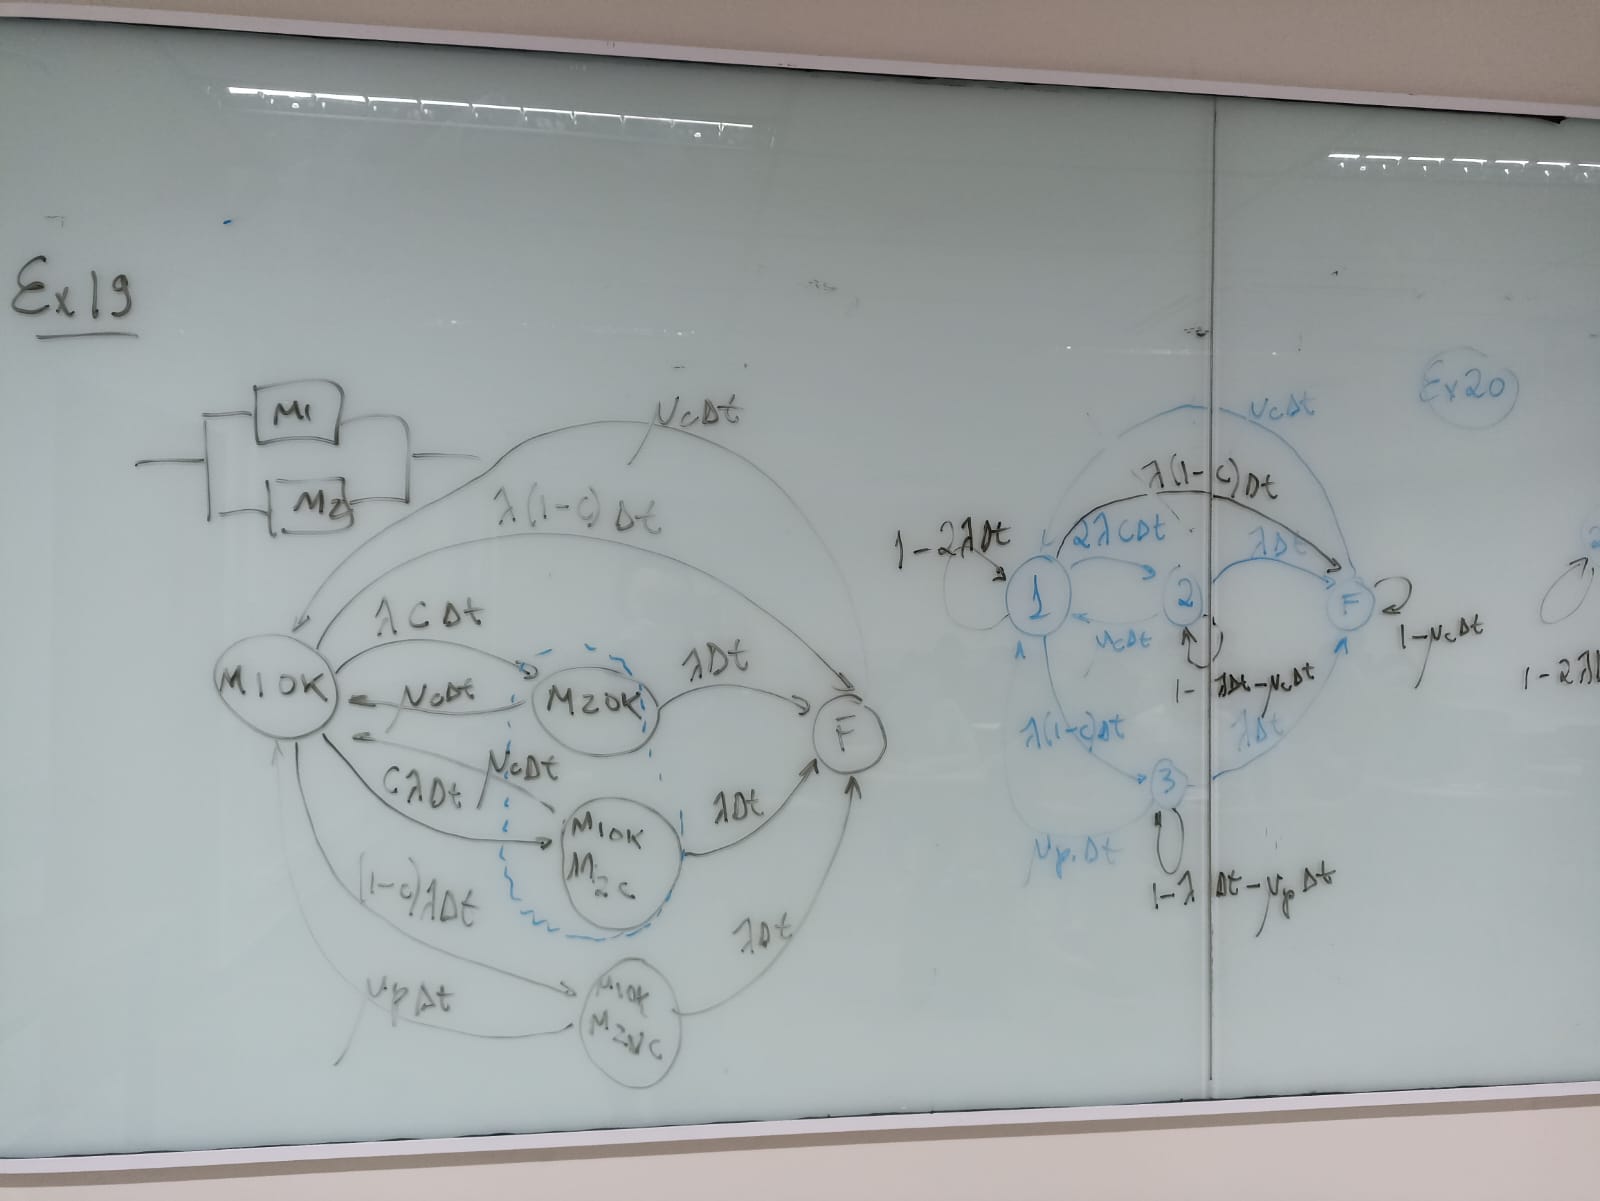 Ex19
M1
M2
μcΔt
λ(1-c)Δt
λCΔt
M1OK
μcΔt
M2OK
λΔt
F
μcΔt
CλΔt
M1OK
M2c
λΔt
(1-c)λΔt
λΔt
μpΔt
M1OK
M2NC
Ex20
μcΔt
λ(1-c)Δt
1-2λΔt
2λCΔt
λΔt
1
2
F
μcΔt
1-μcΔt
1-λΔt-μcΔt
λ(1-c)Δt
λΔt
3
μpΔt
1-λΔt-μpΔt
1-2λ